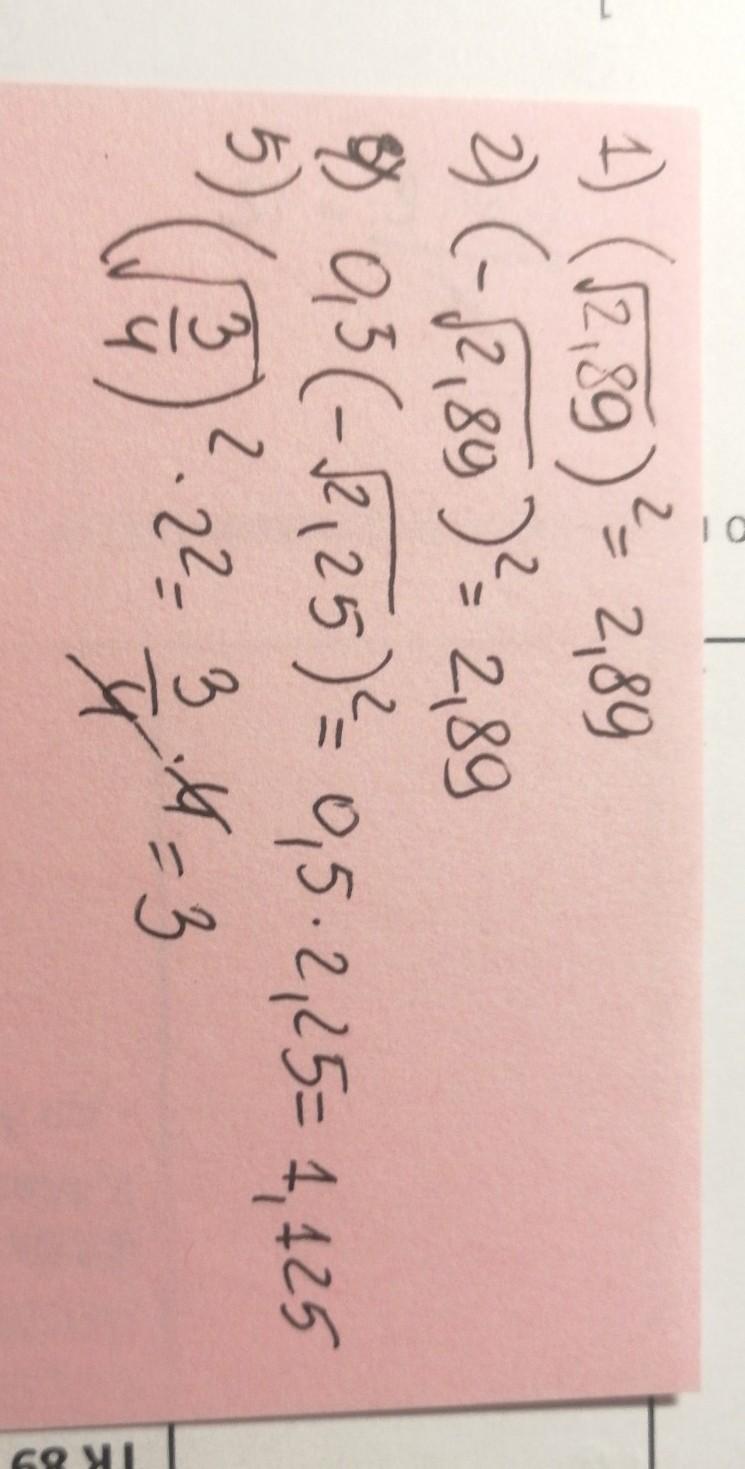 1) (√2,89)² = 2,89
2) (-√2,89)² = 2,89
4) 0,3(-√2,25)² = 0,5 · 2,25 = 1,125
5) (√3/4)² · 2² = 3/4 · 4 = 3
TR 89